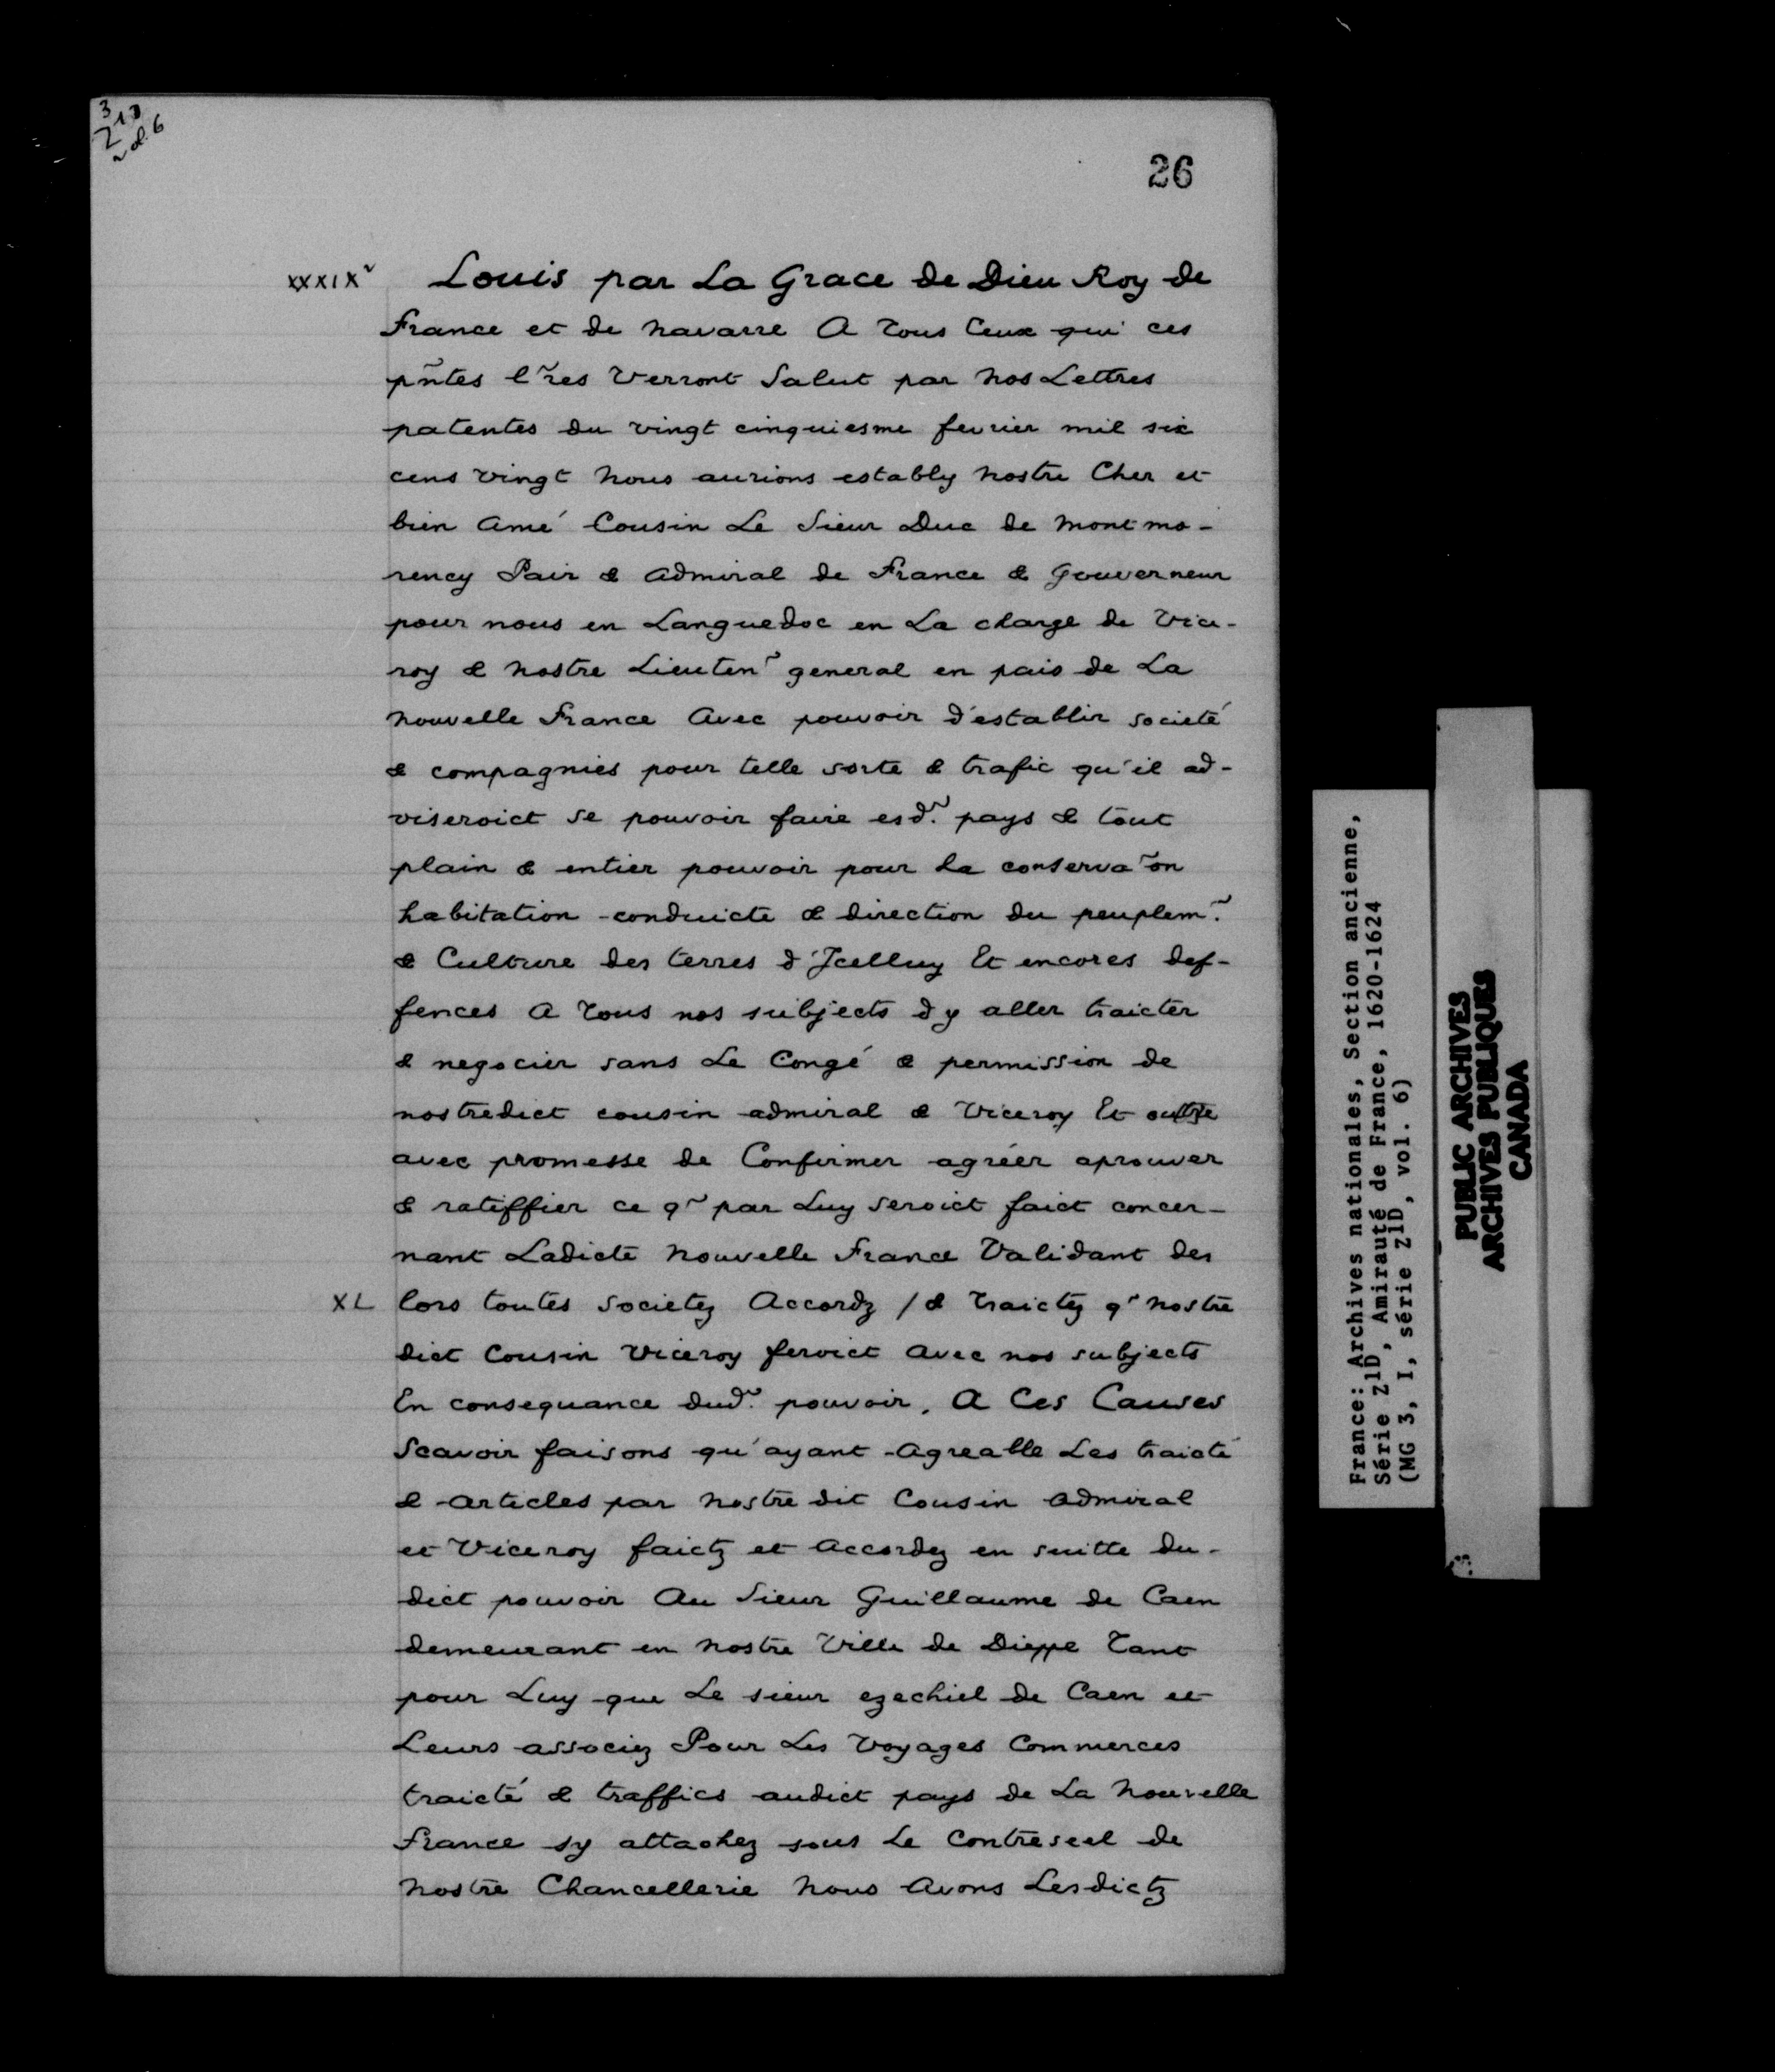 3
Z1D
vol. 6
26
XXXIX~ Louis par La Grace de Dieu Roy de
France et de Navarre A Tous Ceux qui ces
pñtes l~res Verront Salut par Nos Lettres
patentes du vingt cinquiesme fevrier mil six
cens vingt Nous aurions estably Nostre Cher et
bien Amé Cousin Le Sieur Duc de Montmo-
rency Pair & Admiral de France & Gouverneur
pour nous en Languedoc en La charge de Vice-
roy & Nostre Lieuten~ general en pais de La
Nouvelle France Avec pouvoir d'establir societé
& compagnies pour telle sorte & trafic qu'il ad-
viseroict se pouvoir faire esd~. pays & tout
plain & entier pouvoir pour La conserva~on
habitation conduicte & direction du peuplem~.
& Culture des terres d'Jcelluy Et encores def-
fences A Tous nos subjects d'y aller traicter
& negocier sans Le Congé & permission de
nostredict cousin admiral & Viceroy Et outre
avec promesse de Confirmer agréer aprouver
& ratiffier ce q~ par Luy seroict faict concer-
nant Ladicte Nouvelle France Validant des
XL lors toutes societez Accordz / & Traictez q~ Nostre
dict Cousin Viceroy feroict Avec nos subjects
En consequance dud~. pouvoir, A Ces Causes
Scavoir faisons qu'ayant Agreable Les traicté
& Articles par Nostre dit Cousin Admiral
et Viceroy faictz et Accordez en suitte du-
dict pouvoir Au Sieur Guillaume de Caen
demeurant en Nostre Ville de Dieppe Tant
pour Luy que Le sieur ezechiel de Caen et
Leurs associez Pour Les Voyages Commerces
traicté & traffics audict pays de La Nouvelle
France sy attachez sous Le Contreseel de
Nostre Chancellerie Nous Avons Lesdictz
France: Archives nationales, Section ancienne,
Série Z1D, Amirauté de France, 1620-1624
(MG 3, I, série Z1D, vol. 6)
PUBLIC ARCHIVES
ARCHIVES PUBLIQUES
CANADA